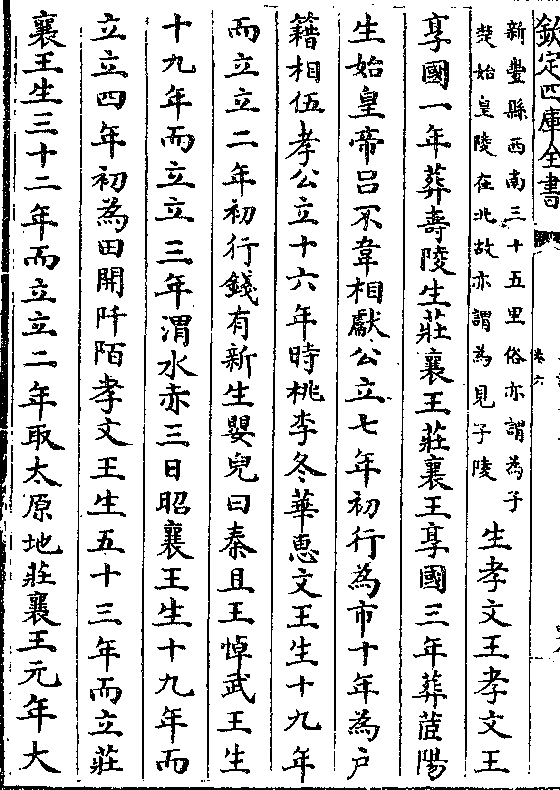 欽定四庫全書
卷六
新豐縣西南三十五里俗亦謂為子
楚始皇陵在北故亦謂為見子陵
生孝文王孝文王
享國一年葬壽陵生莊襄王莊襄王享國三年葬茝陽
生始皇帝呂不韋相獻公立七年初行為市十年為户
籍相伍孝公立十六年時桃李冬華惠文王生十九年
而立立二年初行錢有新生嬰兒曰秦且王悼武王生
十九年而立立三年渭水赤三日昭襄王生十九年而
立立四年初為田開阡陌孝文王生五十三年而立莊
襄王生三十二年而立立二年取太原地莊襄王元年大